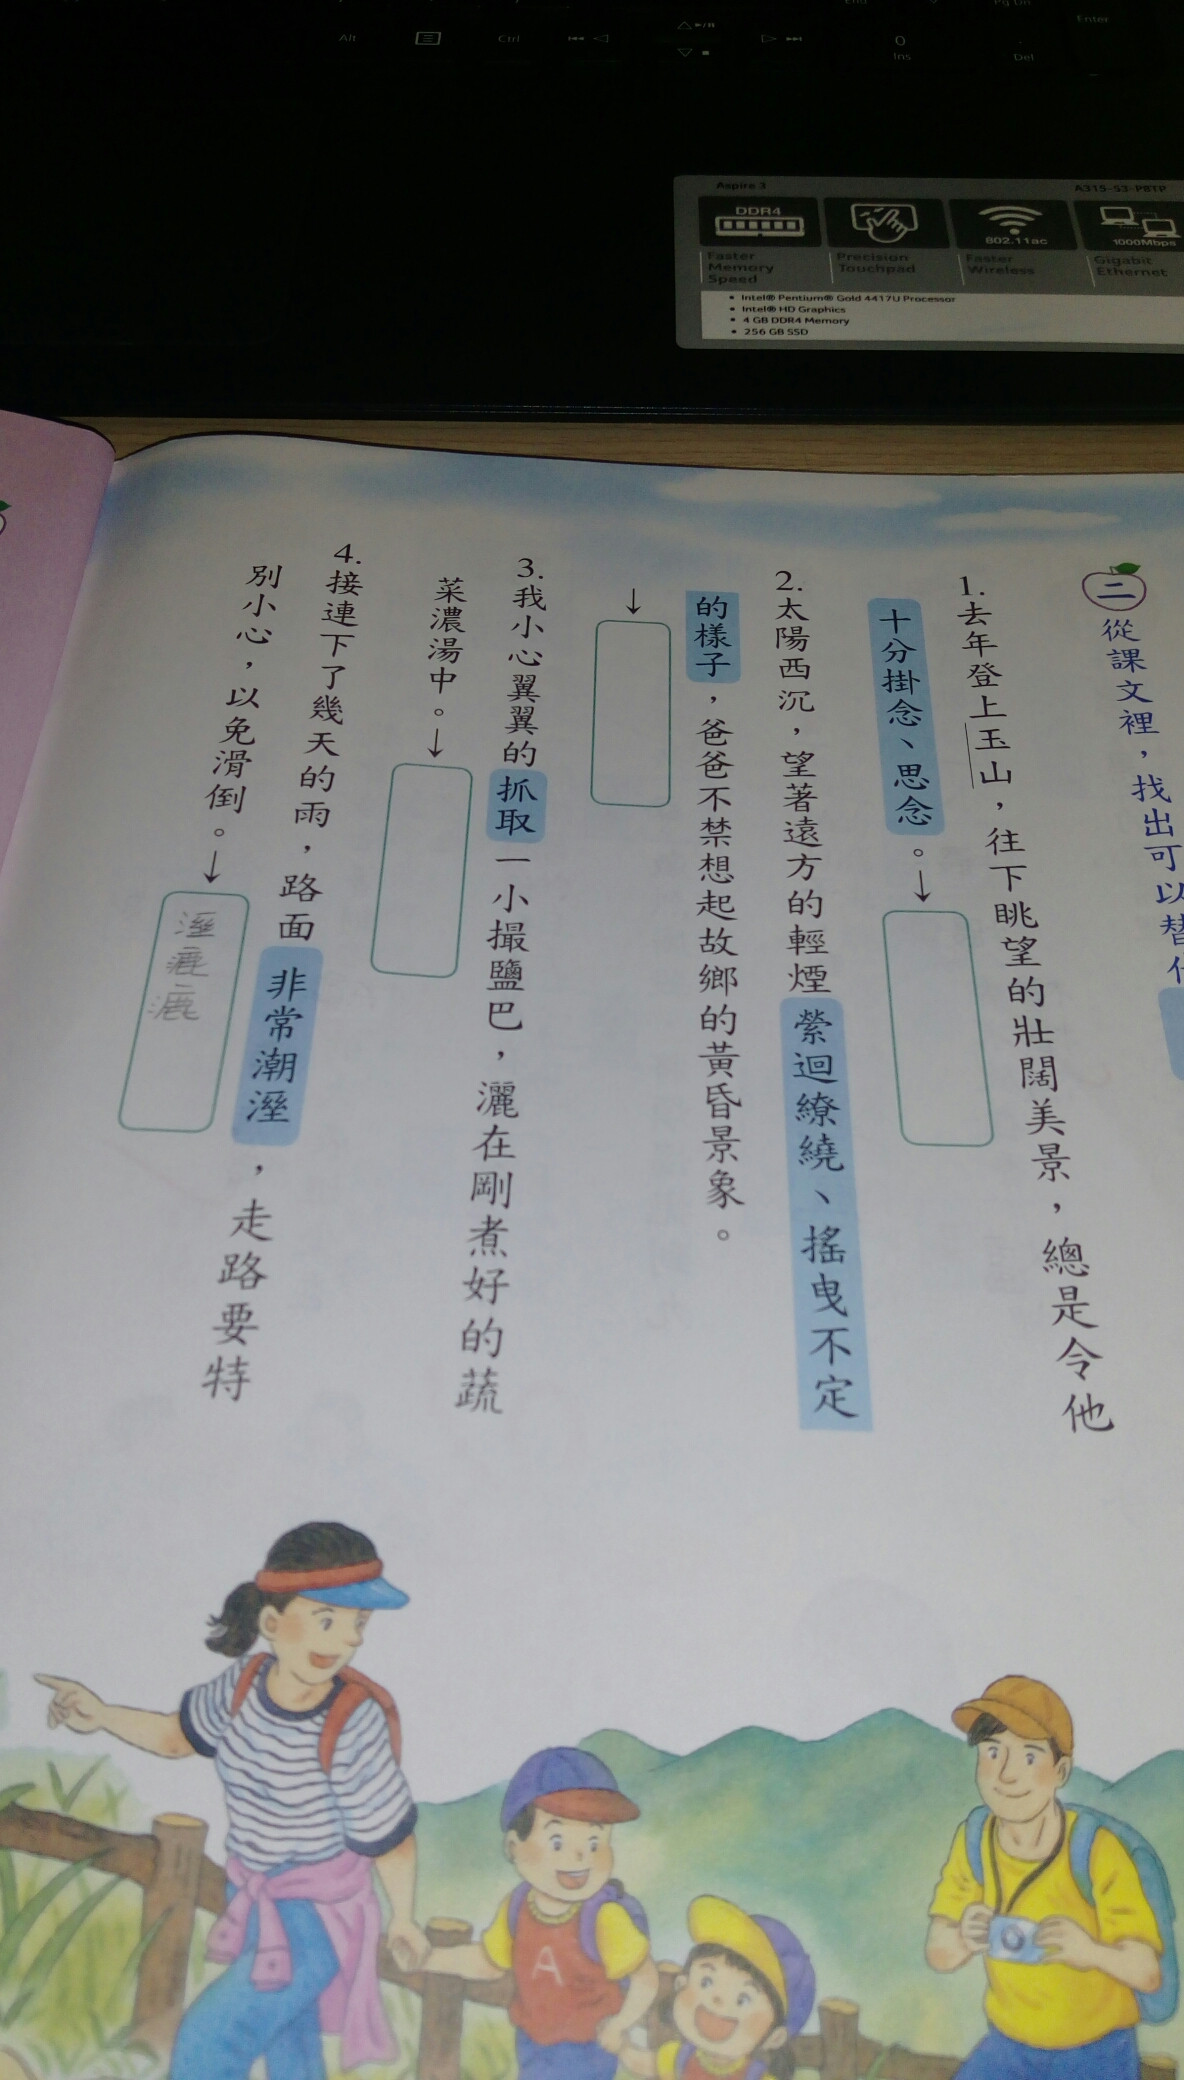 Alt
Ctrl
0
Ins
.
Del
End
Pg Dn
Enter
Aspire 3
A315-53-P8TP
DDR4
802.11ac
1000Mbps
Faster Memory Speed
Precision Touchpad
Faster Wireless
Gigabit Ethernet
• Intel® Pentium® Gold 4417U Processor
• Intel® HD Graphics
• 4 GB DDR4 Memory
• 256 GB SSD
二 從課文裡，找出可以替
1.去年登上玉山，往下眺望的壯闊美景，總是令他
十分掛念、思念。↓
2.太陽西沉，望著遠方的輕煙縈迴繚繞、搖曳不定
的樣子，爸爸不禁想起故鄉的黃昏景象。
↓
3.我小心翼翼的抓取一小撮鹽巴，灑在剛煮好的蔬
菜濃湯中。↓
4.接連下了幾天的雨，路面非常潮溼，走路要特
別小心，以免滑倒。↓
溼漉漉
A